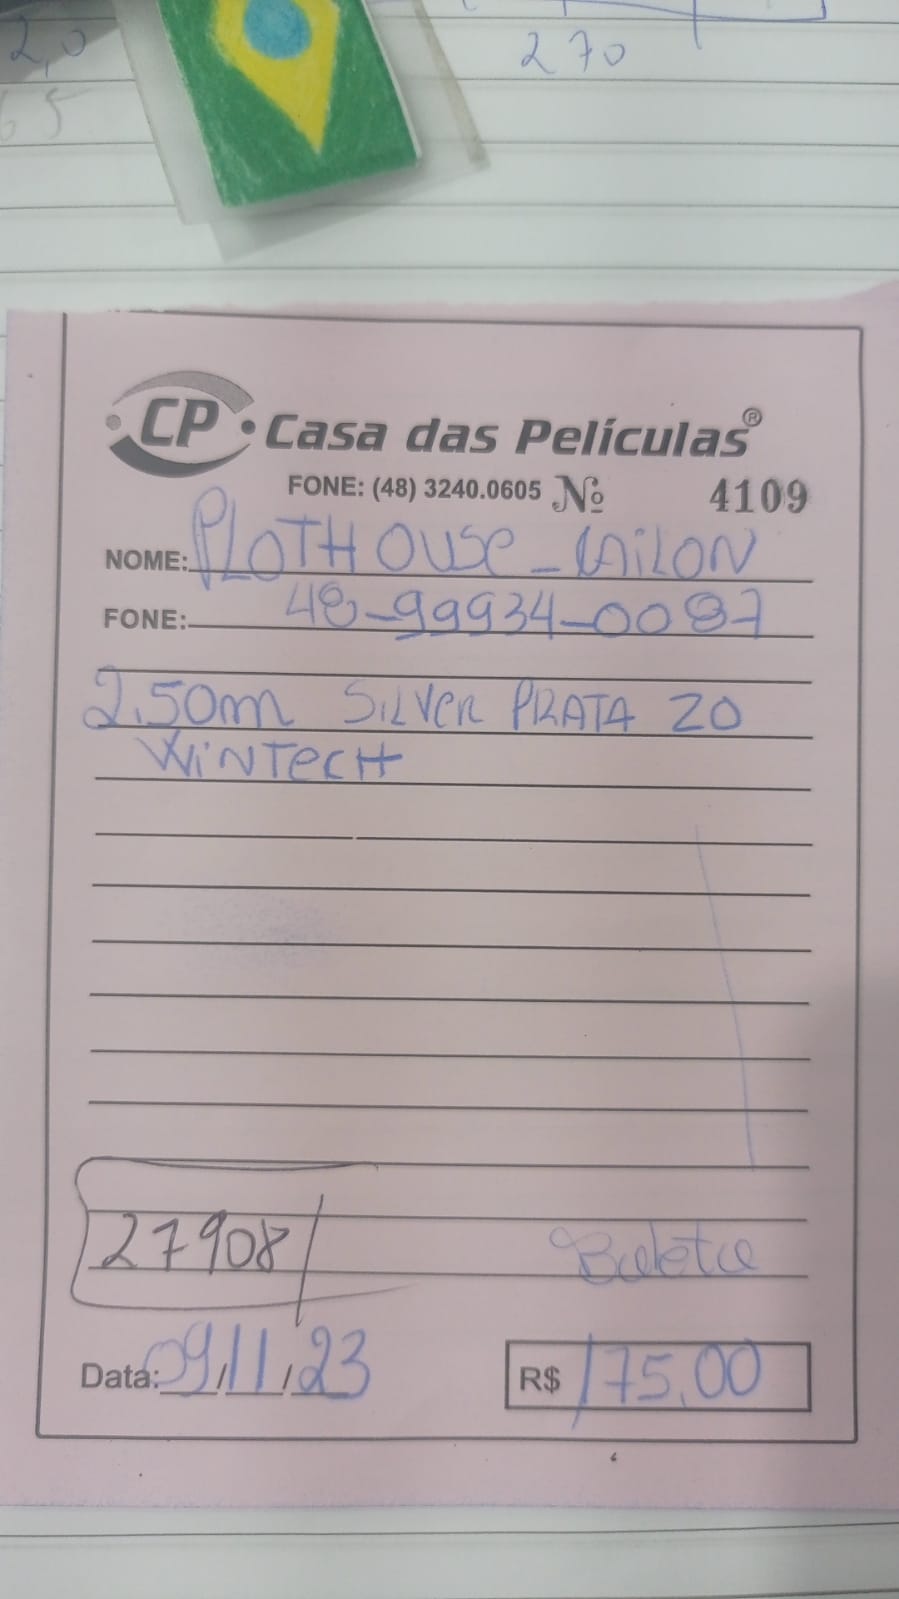 2,0
270
65
CP Casa das Películas®
FONE: (48) 3240.0605 Nº 4109
NOME: PLOTHOUSE - GAILON
FONE: 48-99934-0087
2,50m SILVER PRATA 20
WINTECH
27908
Data: 09/11/23 R$ 175,00